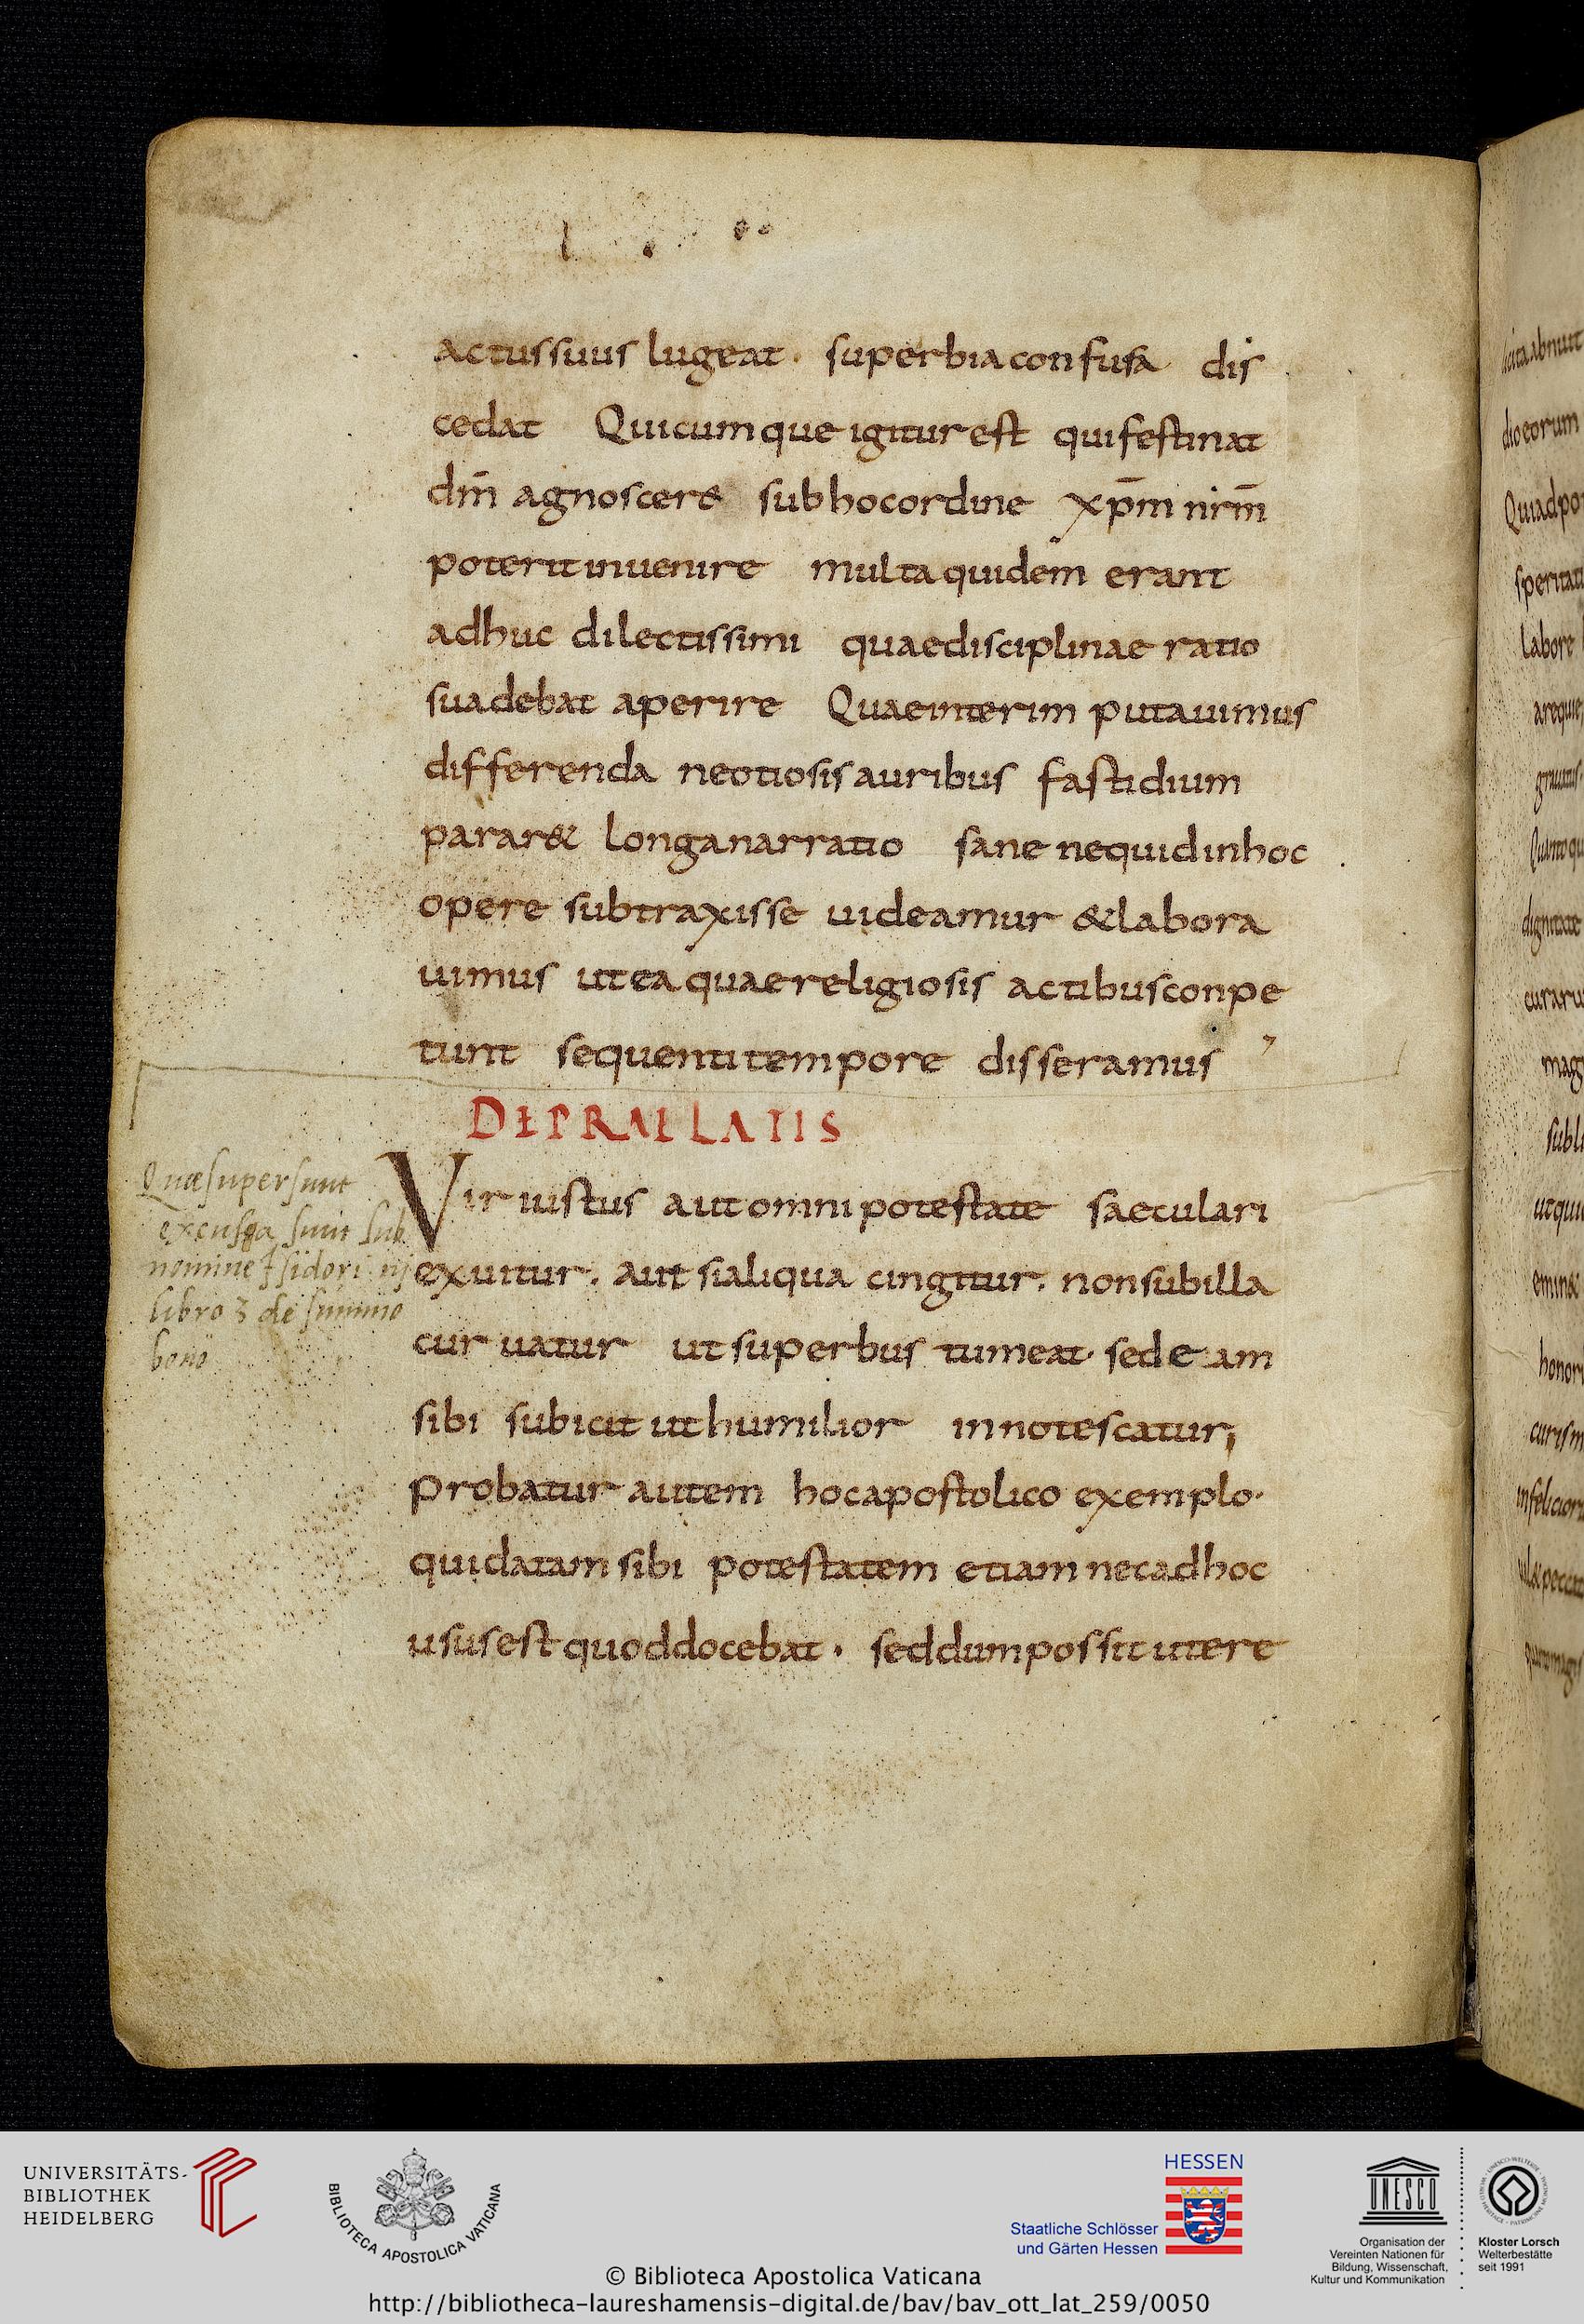 actus suus lugeat · superbia confusa dis
cedat Quicumque igitur est qui festinat
dm̄ agnoscere sub hoc ordine xp̄m nr̄m
poterit inuenire multa quidem erant
adhuc dilectissimi quae disciplinae ratio
suadebat aperire Quae interim putauimus
differenda ne otiosis auribus fastidium
parar& longa narratio sane ne quid in hoc
opere subtraxisse uideamur &labora
uimus ut ea quae religiosis actibus conpe
tunt sequenti tempore disseramus
DE PRAELATIS
Vir iustus aut omni potestate saeculari
exuitur. aut si aliqua cingitur. non sub illa
curuatur ut superbus tumeat · sed eam
sibi subicit ut humilior innotescatur;
Probatur autem hoc apostolico exemplo ·
qui datam sibi potestatem etiam nec ad hoc
usus est quod docebat · sed dum possit utere
Quæ supersunt
excusa sunt sub
nomine Isidori in
libro 3 de summo
bono
Quiadpo
labore
UNIVERSITÄTS-
BIBLIOTHEK
HEIDELBERG
BIBLIOTECA APOSTOLICA VATICANA
HESSEN
Staatliche Schlösser
und Gärten Hessen
UNESCO
Organisation der
Vereinten Nationen für
Bildung, Wissenschaft,
Kultur und Kommunikation
Kloster Lorsch
Welterbestätte
seit 1991
© Biblioteca Apostolica Vaticana
http://bibliotheca-laureshamensis-digital.de/bav/bav_ott_lat_259/0050